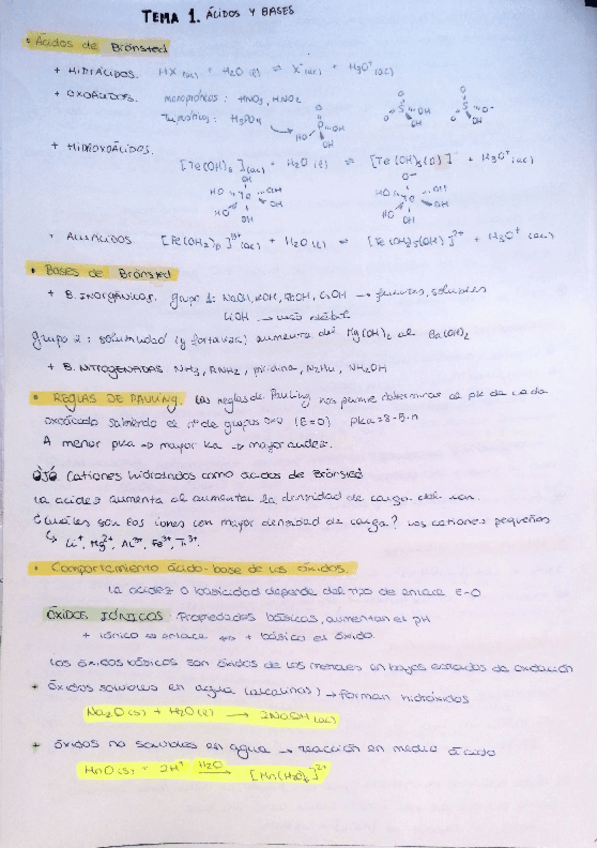 TEMA 1. ÁCIDOS Y BASES
• Ácidos de Brönsted
+ HIDRÁCIDOS. HX (ac) + H2O (l) ⇌ X⁻ (ac) + H3O⁺ (ac)
+ OXOÁCIDOS. monopróticos: HNO3, HNO2
H3PO4
+ HIDROXOÁCIDOS.
[Te(OH)6] (ac) + H2O (l) ⇌ [Te(OH)5(O)]⁻ + H3O⁺ (ac)
+ ACUÁCIDOS [Fe(OH2)6]³⁺ (ac) + H2O (l) ⇌ [Fe(OH2)5(OH)]²⁺ + H3O⁺ (ac)
• Bases de Brönsted
+ B. INORGÁNICAS. grupo 1: NaOH, KOH, RbOH, CsOH → fuertes, solubles
LiOH → más débil
grupo 2: solubilidad (y fortaleza) aumenta del Mg(OH)2 al Ba(OH)2
+ B. NITROGENADAS NH3, RNH2, piridina, N2H4, NH2OH
• REGLAS DE PAULING. Las reglas de Pauling nos permite determinar el pka de cada
oxoácido sabiendo el nº de grupos oxo (E=O) pka = 8-5·n
A menor pka → mayor ka → mayor acidez.
OJO. Cationes hidratados como ácidos de Brönsted
La acidez aumenta al aumentar la densidad de carga del ion.
¿Cuáles son los iones con mayor densidad de carga? Los cationes pequeños
↳ Li⁺, Mg²⁺, Al³⁺, Fe³⁺, Ti³⁺.
• Comportamiento ácido-base de los óxidos.
La acidez o basicidad depende del tipo de enlace E-O
ÓXIDOS IÓNICOS Propiedades básicas, aumentan el pH
+ iónico el enlace ⇔ + básico el óxido
Los óxidos básicos son óxidos de los metales en bajos estados de oxidación
+ óxidos solubles en agua (alcalinos) → forman hidróxidos
Na2O (s) + H2O (l) → 2NaOH (ac)
+ óxidos no solubles en agua → reacción en medio ácido
MnO (s) + 2H⁺ H2O → [Mn(H2O)6]²⁺